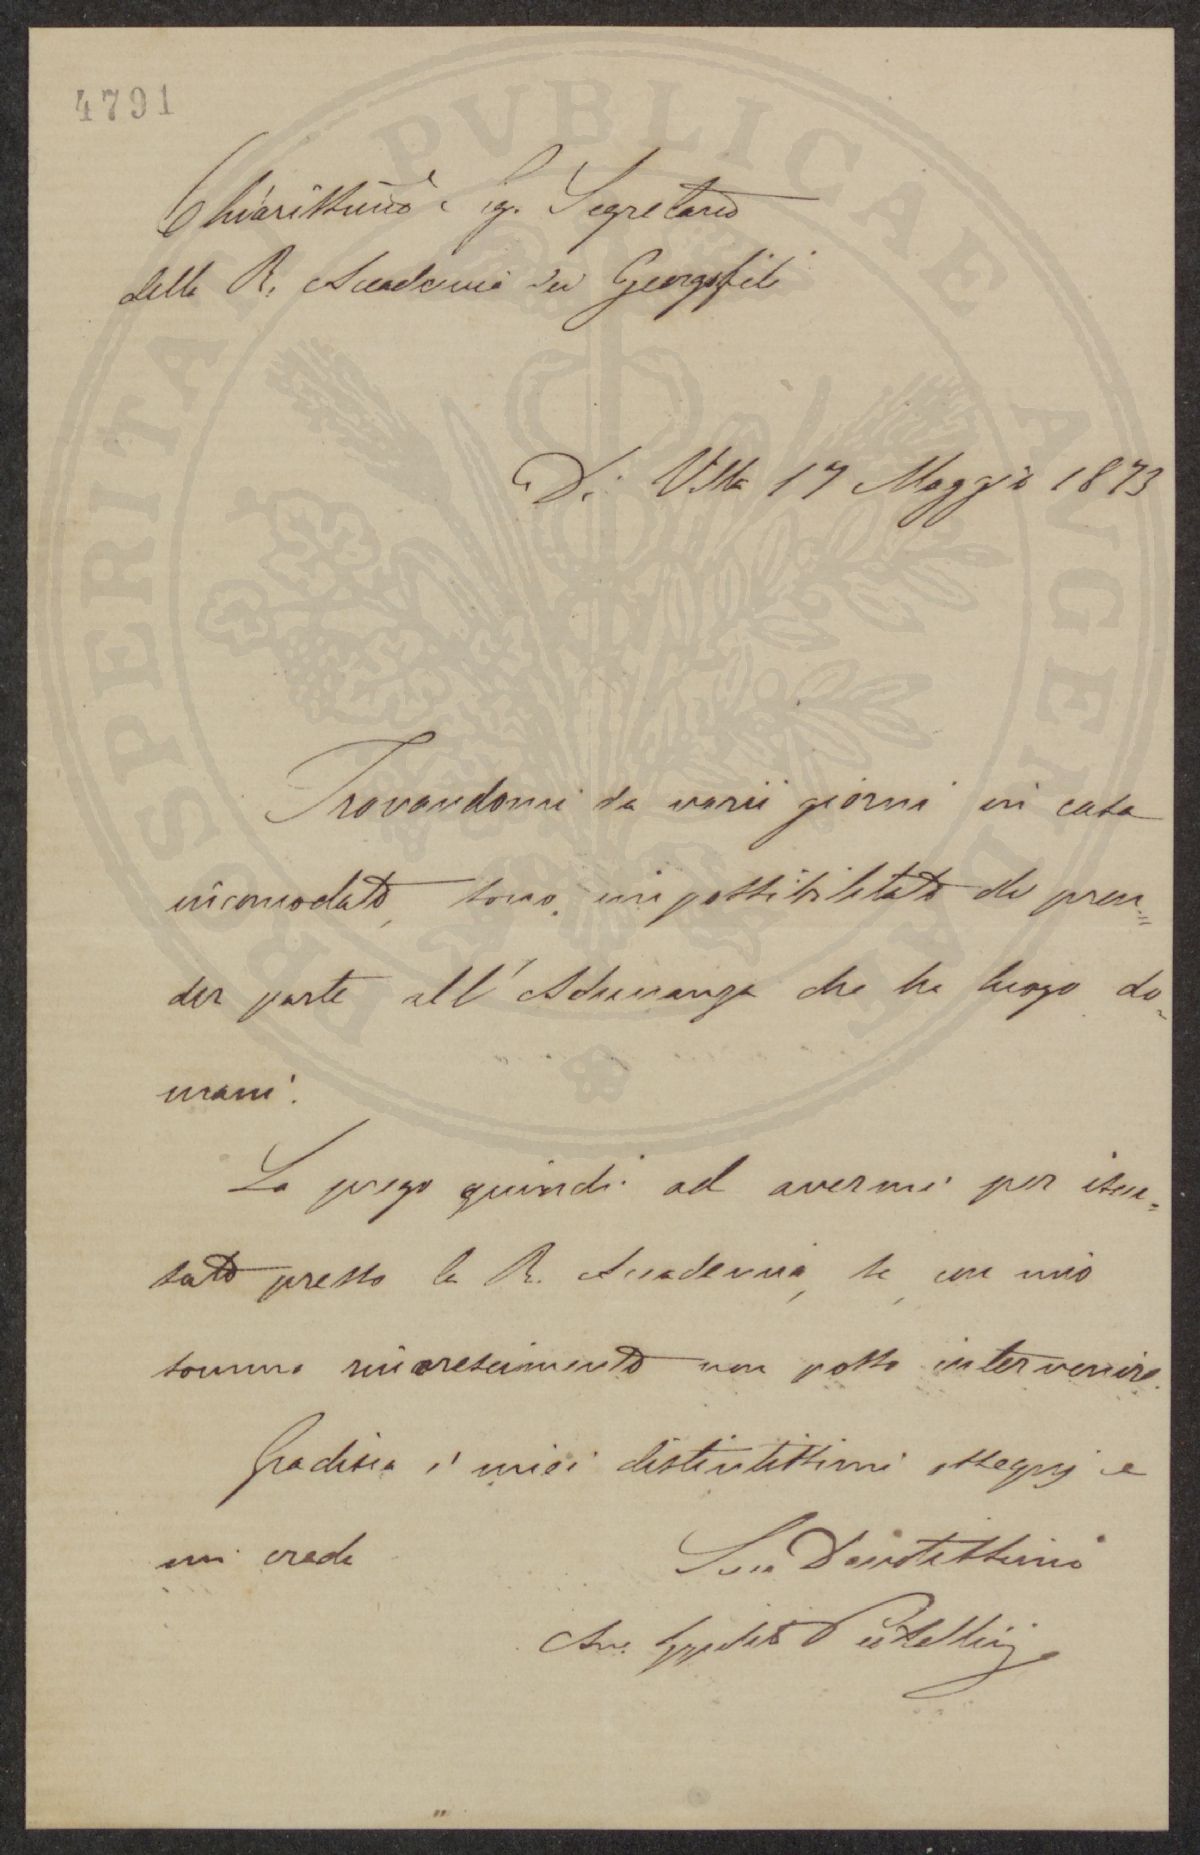 4791
Chiarissimo Sig. Segretario
della R. Accademia dei Georgofili
Di Villa 17 Maggio 1873
Trovandomi da varii giorni in casa
incomodato, sono impossibilitato di pren=
der parte all'Adunanza che ha luogo do=
mani.
La prego quindi ad avermi per iscu=
sato presso la R. Accademia, se con mio
sommo rincrescimento non posso intervenire.
Gradisca i miei distintissimi ossequj e
mi creda
Suo Devotissimo
Av. Ippolito
PROSPERITATI PVBLICAE AVGENDAE